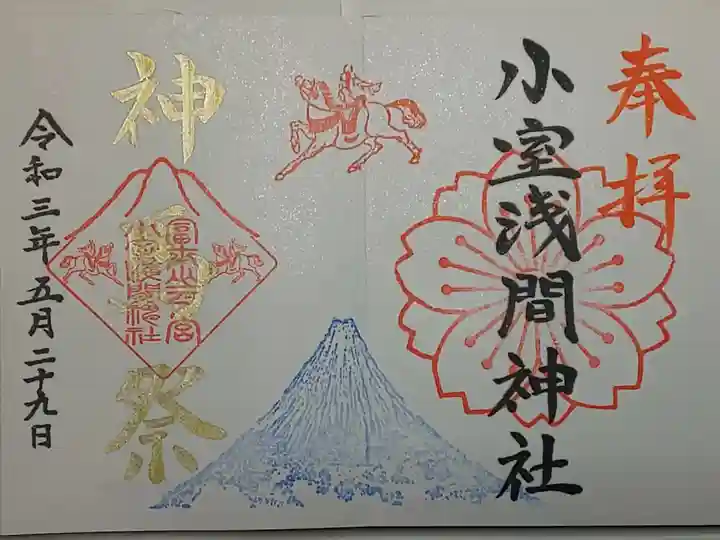 奉拝
小室浅間神社
神
祭
冨士山下宮
小室浅間神社
令和三年五月二十九日